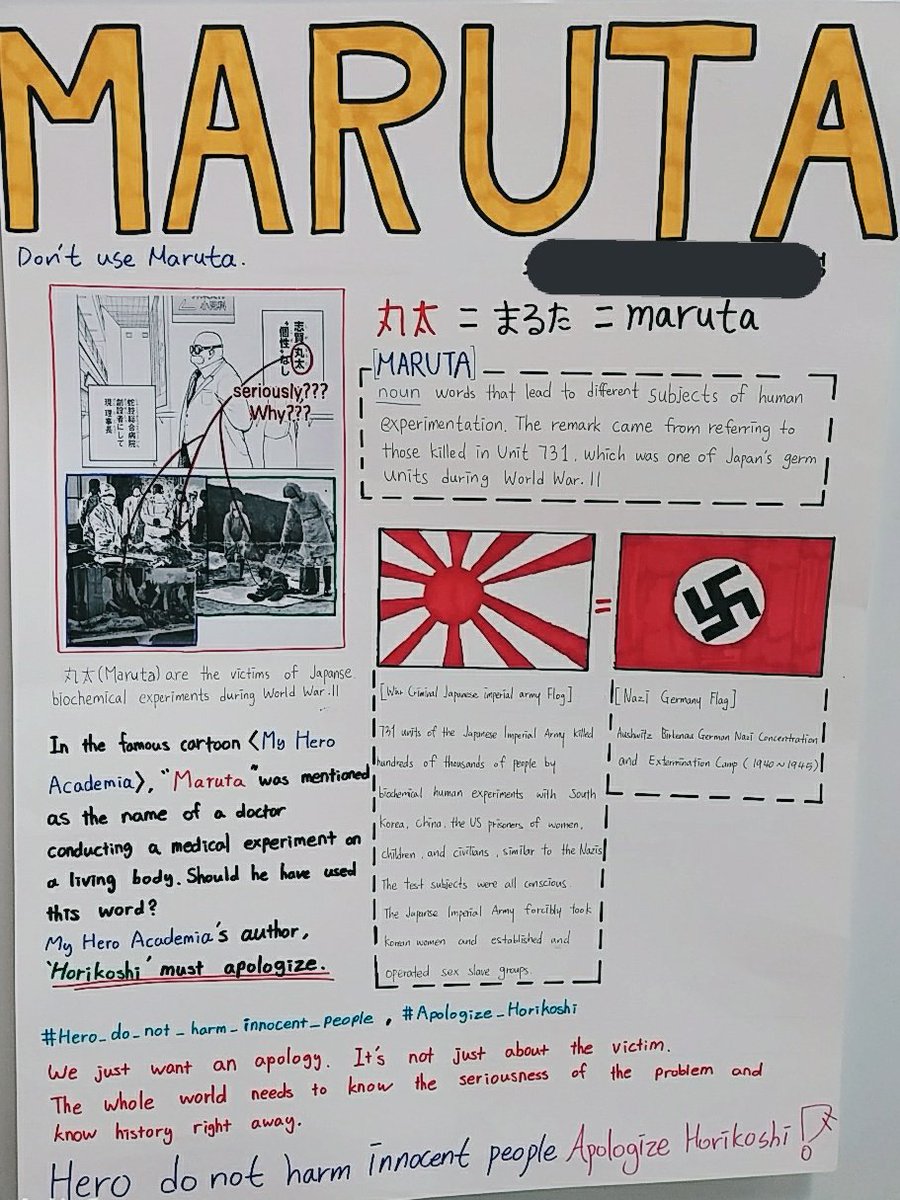 MARUTA
Don't use Maruta.
志賀丸太
"個性"なし
蛇腔総合病院
創設者にして
現理事長
seriously???
Why???
丸太(Maruta) are the victims of Japanse
biochemical experiments during World War.II
In the famous cartoon <My Hero
Academia>, "Maruta" was mentioned
as the name of a doctor
conducting a medical experiment on
a living body. Should he have used
this word?
My Hero Academia's author,
'Horikoshi' must apologize.
丸太 = まるた = maruta
[MARUTA]
noun words that lead to different subjects of human
experimentation. The remark came from referring to
those killed in Unit 731, which was one of Japan's germ
units during World War.II
=
[War Criminal Japanese imperial army Flog]
731 units of the Japanese Imperial Army killed
hundreds of thousands of people by
biochemical human experiments with South
Korea, China, the US prisoners of women,
children, and civilians, similar to the Nazis
The test subjects were all conscious.
The Japanse Imperial Army forcibly took
korean women and established and
operated sex slave groups.
[Nazi Germany Flag]
Aushwitz Birkenau German Nazi Concentration
and Extermination Camp (1940~1945)
#Hero_do_not_harm_innocent_people, #Apologize_Horikoshi
We just want an apology. It's not just about the victim.
The whole world needs to know the seriousness of the problem and
know history right away.
Hero do not harm innocent people Apologize Horikoshi!